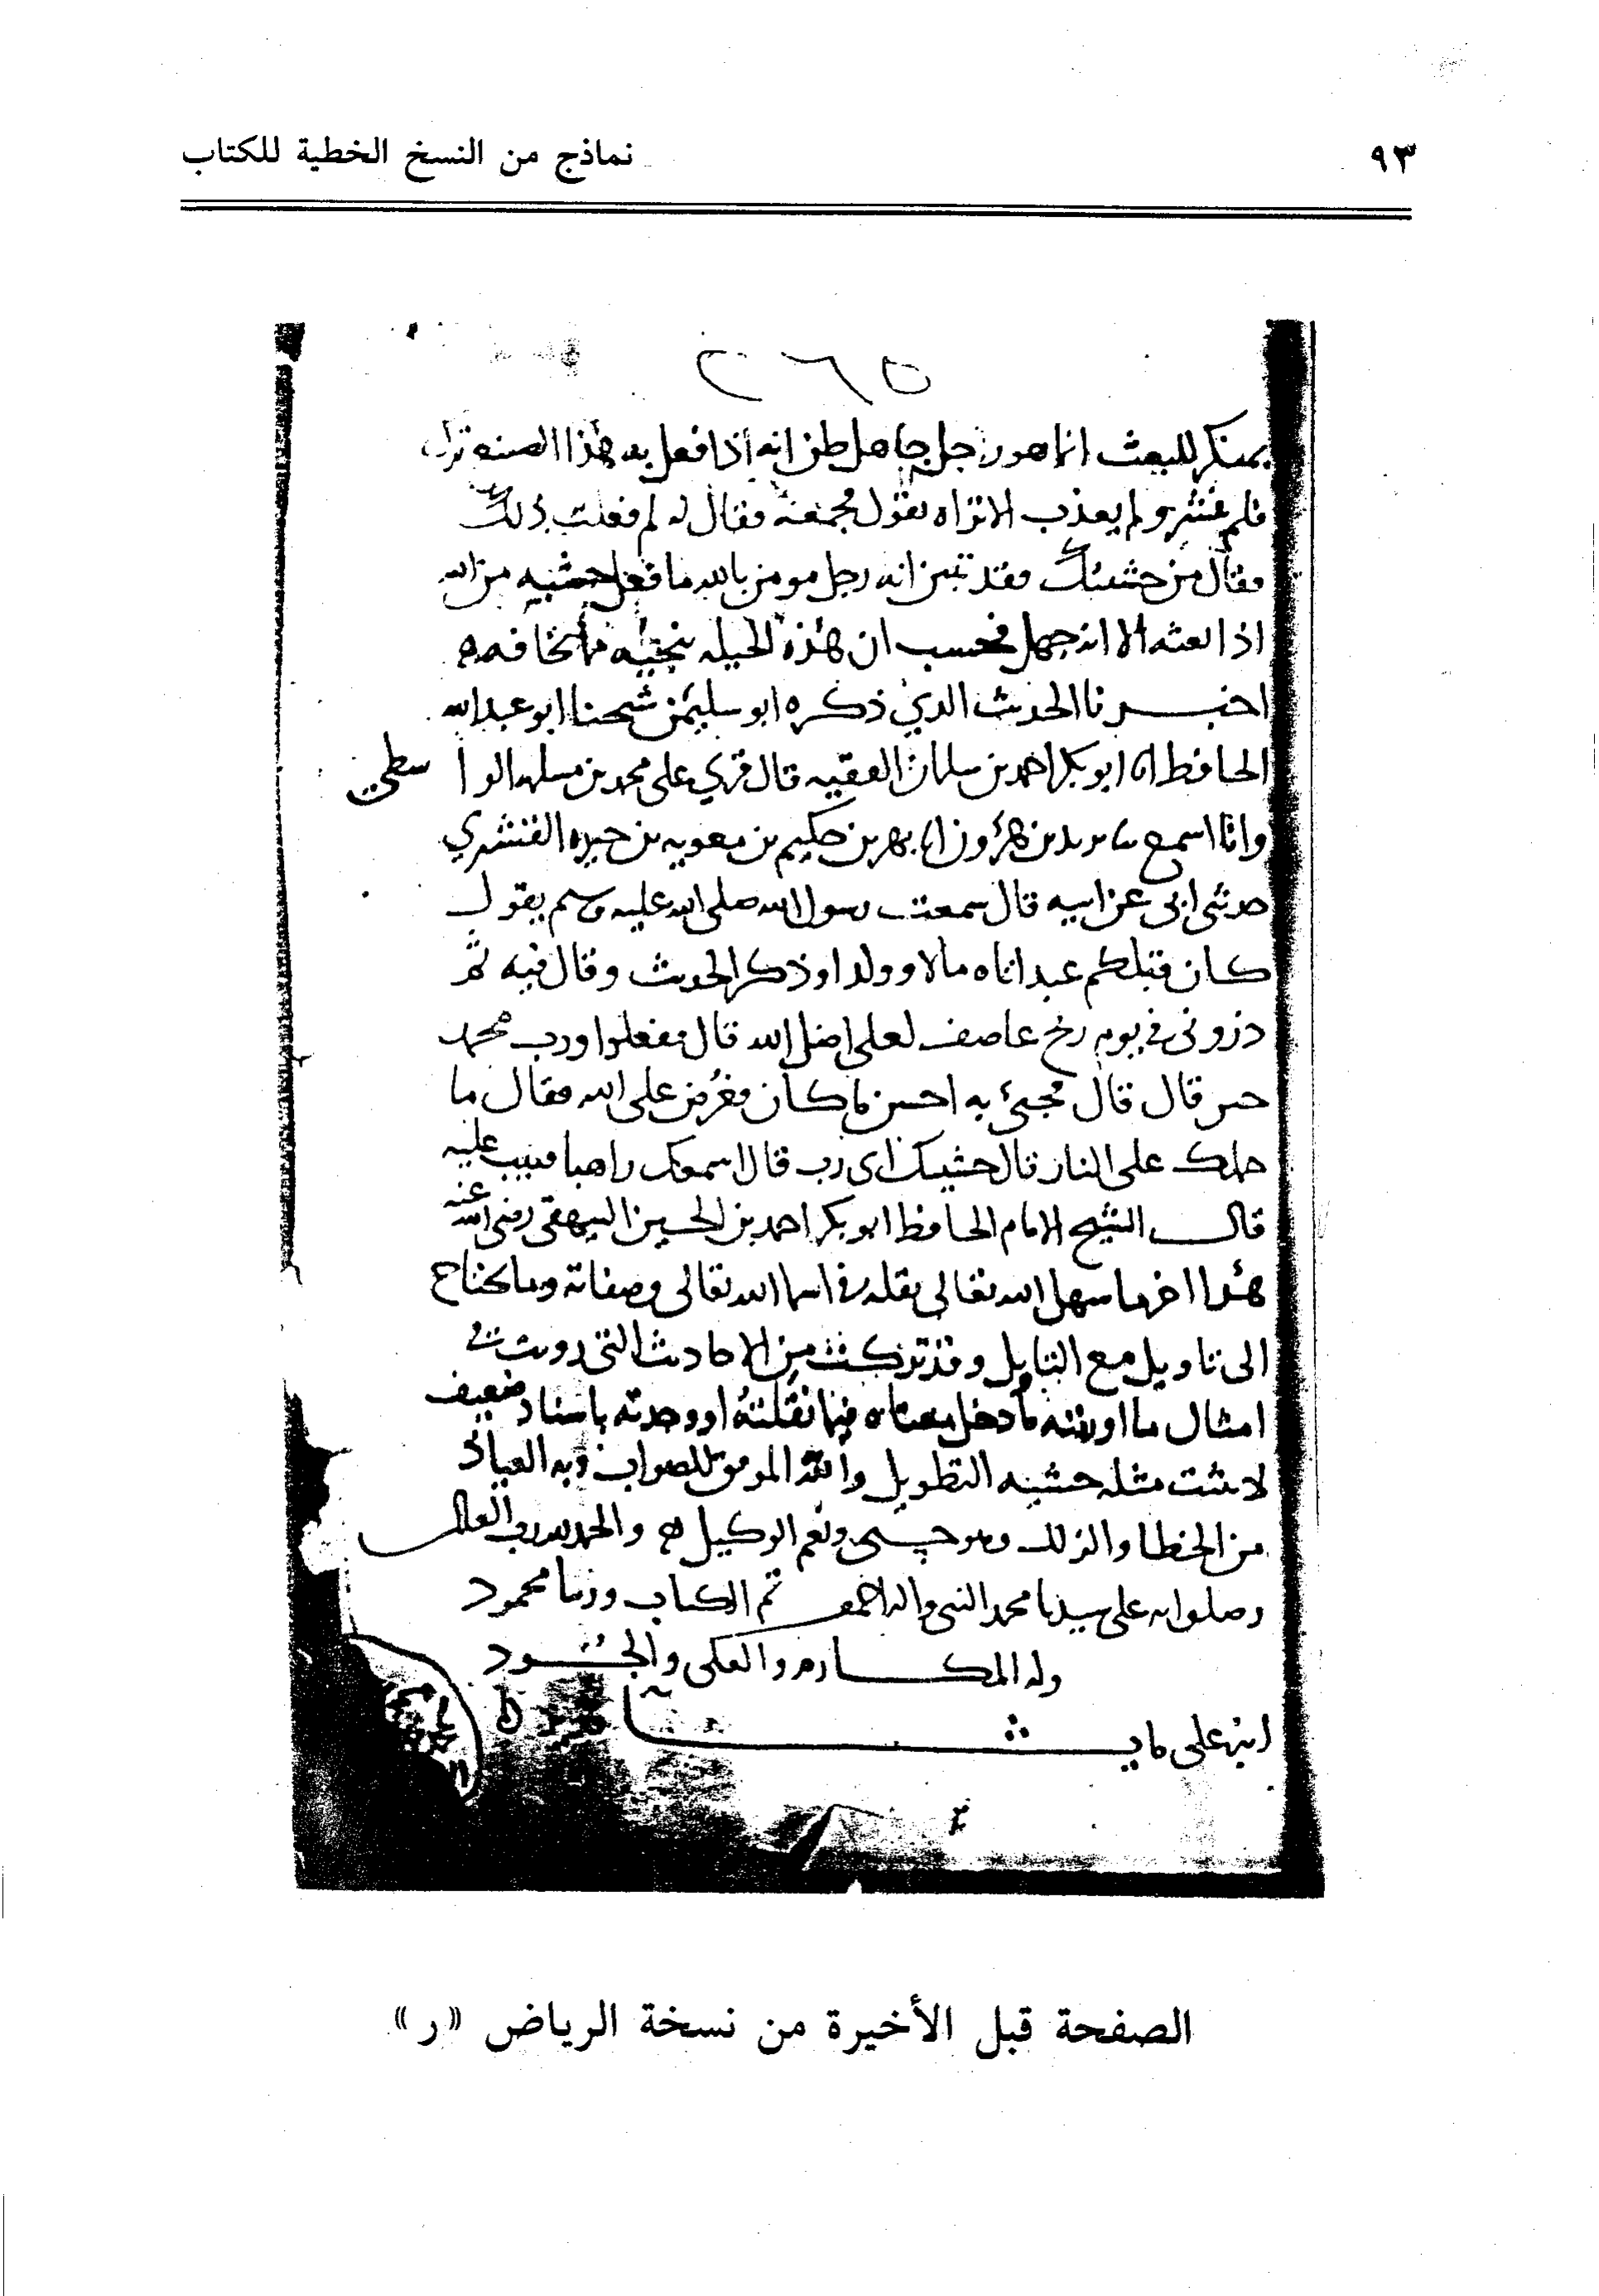 ٩٣
نماذج من النسخ الخطية للكتاب
بمنكر للبعث انما هو رجل جاهل ظن انه اذا فعل به هذا الصنع ترك
فلم ينشر ولم يعذب الا تراه يقول فجمعه فقال له لم فعلت ذلك
فقال من خشيتك وقد تبين انه رجل مومن بالله ما فعل خشيه من الله
اذا بعثه الا انه جهل فحسب ان هذه الحيله تنجيه مما يخافه
اخبرنا الحديث الذي ذكره ابو سليمن شيخنا ابو عبد الله
الحافظ انا ابو بكر احمد بن سلمان الفقيه قال قري على محمد بن مسلمه الواسطي
وانا اسمع ثنا يزيد بن هرون انا بهز بن حكيم بن معويه بن حيده القشيري
حدثني ابي عن ابيه قال سمعت رسول الله صلى الله عليه وسلم يقول
كان قبلكم عبد اتاه مالا وولدا وذكر الحديث وقال فيه ثم
ذروني في يوم ريح عاصف لعلي اضل الله قال ففعلوا ورب محمد
حين قال قال فجيئ به احسن ما كان فعرض على الله فقال ما
حملك على النار قال خشيتك اى رب قال اسمعك راهبا فتيب عليه
قال الشيخ الامام الحافظ ابو بكر احمد بن الحسين البيهقي رضي الله عنه
هذا اخر ما سهل الله تعالى نقله في اسما الله تعالى وصفاته وما يحتاج
الى تاويل مع التاويل وقد تركت من الاحاديث التي رويت في
امثال ما اوردته ما دخل معناه فيما نقلته او وجدته باسناد ضعيف
لا يثبت مثله خشيه التطويل والله الموفق للصواب وبه العياذ
من الخطا والزلل وهو حسبي ونعم الوكيل والحمد لله رب العالمين
وصلواته على سيدنا محمد النبي واله اجمعين تم الكتاب وربنا محمود
وله المكارم والعلى والجود
انه على ما يشا
الصفحة قبل الأخيرة من نسخة الرياض «ر»